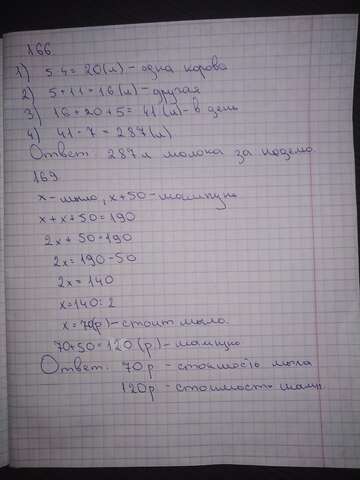 166.
1) 5·4=20(л) - одна корова
2) 5+11=16(л) - другая
3) 16+20+5=41(л) - в день
4) 41·7=287(л)
Ответ: 287 л молока за неделю
169
x - мыло, x+50 - шампунь
x+x+50=190
2x+50=190
2x=190-50
2x=140
x=140:2
x=70(р) - стоит мыло.
70+50=120(р) - шампунь
Ответ: 70р - стоимость мыла
120р - стоимость шамп